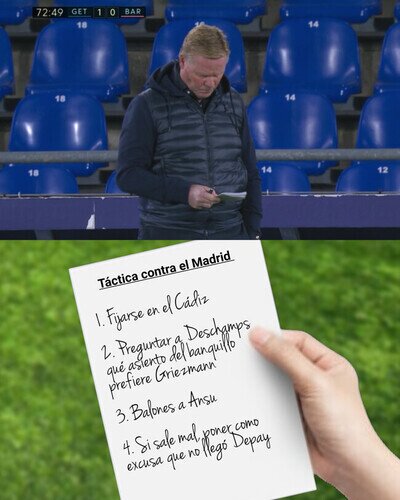 72:49 GET 1 0 BAR
18
14
18
14
18
18
14
12
Táctica contra el Madrid
1. Fijarse en el Cádiz
2. Preguntar a Deschamps
qué asiento del banquillo
prefiere Griezmann
3. Balones a Ansu
4. Si sale mal, poner como
excusa que no llegó Depay